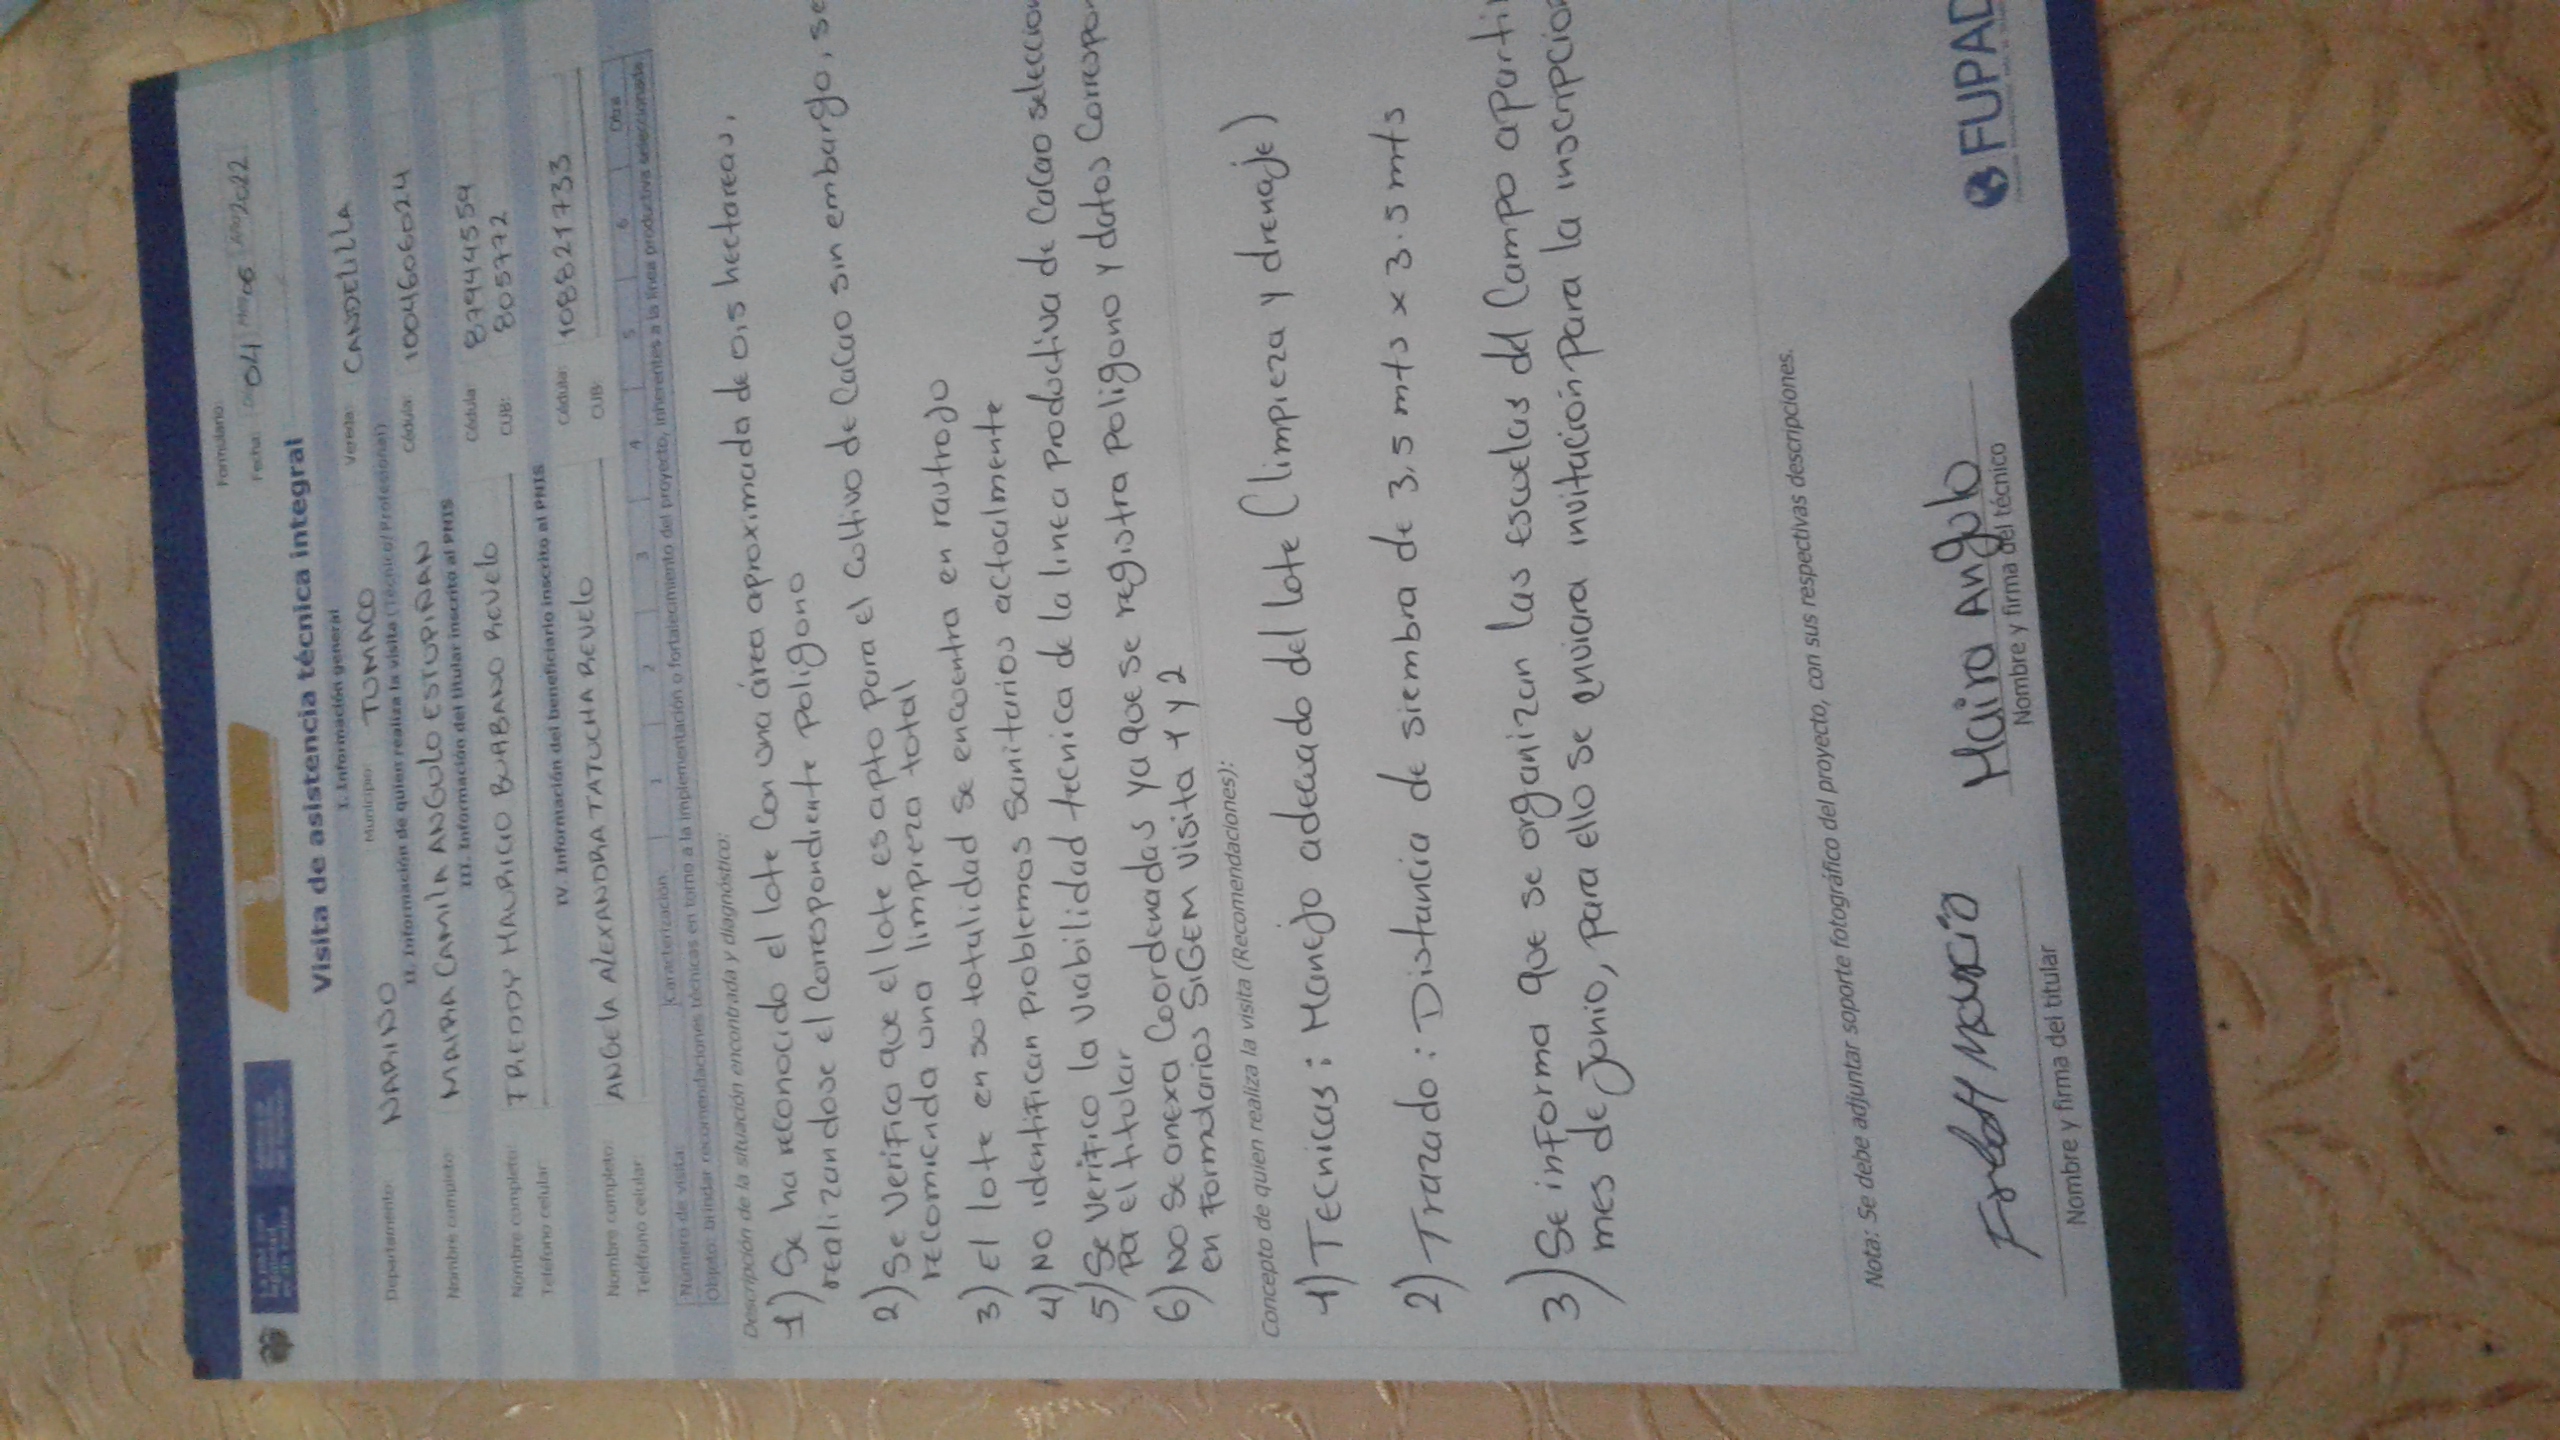 Formulario:
Fecha: 04 06 2022
Visita de asistencia técnica integral
I. Información general
Departamento: NARIÑO Municipio: TUMACO Vereda: CANDELILLA
II. Información de quien realiza la visita (Técnico/ Profesional)
Nombre completo: MARIA CAMILA ANGULO ESTUPIÑAN Cédula: 1004606024
III. Información del titular inscrito al PNIS
Nombre completo: FREDDY MAURICIO BURBANO REVELO Cédula: 87944559
Teléfono celular: CUB: 805772
IV. Información del beneficiario inscrito al PNIS
Nombre completo: ANGELA ALEXANDRA TATUCHA REVELO Cédula: 1088821733
Teléfono celular: CUB:
Número de visita: Caracterización 1 2 3 4 5 6 Otra
Objeto: brindar recomendaciones técnicas en torno a la implementación o fortalecimiento del proyecto, inherentes a la línea productiva seleccionada
Descripción de la situación encontrada y diagnóstico:
1) Se ha reconocido el lote con una área aproximada de 0,5 hectareas,
realizandose el correspondiente poligono
2) Se verifico que el lote es apto para el cultivo de cacao sin embargo, se
recomienda una limpieza total
3) El lote en so totalidad se encuentra en rautrojo
4) No identifican problemas sanitarios actualmente
5) Se verifico la viabilidad tecnica de la linea productiva de cacao seleccion
por el titular
6) No se anexa coordenadas ya que se registra poligono y datos correspon
en formularios SIGEM visita 1 y 2
Concepto de quien realiza la visita (Recomendaciones):
1) Tecnicas: Manejo adecuado del lote (limpieza y drenaje)
2) Trazado: Distancia de siembra de 3,5 mts x 3.5 mts
3) Se informa que se organizan las escuelas del campo aparti
mes de Junio, para ello se enviara invitación para la inscripcion
Nota: Se debe adjuntar soporte fotográfico del proyecto, con sus respectivas descripciones.
Mauricio Maira Angulo
Nombre y firma del titular Nombre y firma del técnico
FUPAD